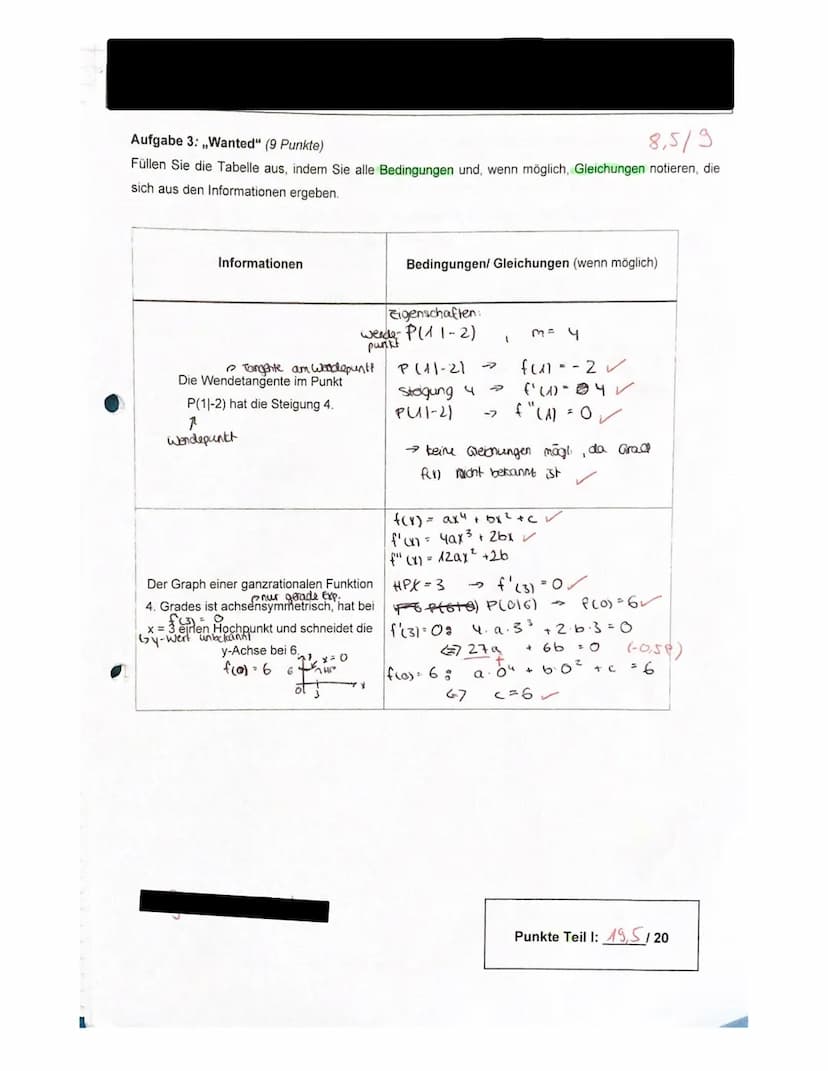 Aufgabe 3: „Wanted“ (9 Punkte)
8,5/9
Füllen Sie die Tabelle aus, indem Sie alle Bedingungen und, wenn möglich, Gleichungen notieren, die
sich aus den Informationen ergeben.
Informationen
Bedingungen/ Gleichungen (wenn möglich)
Tangente am Wendepunkt
Die Wendetangente im Punkt
P(1|-2) hat die Steigung 4.
↑
Wendepunkt
Eigenschaften:
Wende-
punkt
P(1|-2) , m = 4
P(1|-2) → f(1) = -2 ✓
Steigung 4 → f'(1) = 4 ✓
P(1|-2) → f"(1) = 0 ✓
→ keine Gleichungen mögl., da Grad
f(x) nicht bekannt ist ✓
Der Graph einer ganzrationalen Funktion
nur gerade Exp.
4. Grades ist achsensymmetrisch, hat bei
f'(3) = 0
x = 3 einen Hochpunkt und schneidet die
↳ y-Wert unbekannt
y-Achse bei 6.
x=0
f(0) = 6
6
HP
0
3
x
f(x) = ax⁴ + bx² + c ✓
f'(x) = 4ax³ + 2bx ✓
f"(x) = 12ax² + 2b
HPX = 3 → f'(3) = 0 ✓
P(0|6) → f(0) = 6 ✓
f'(3) = 0: 4·a·3³ + 2·b·3 = 0
⇔ 27a + 6b = 0 (-0,5P)
f
f(0) = 6: a·0⁴ + b·0² + c = 6
⇔ c = 6 ✓
Punkte Teil I: 19,5 / 20